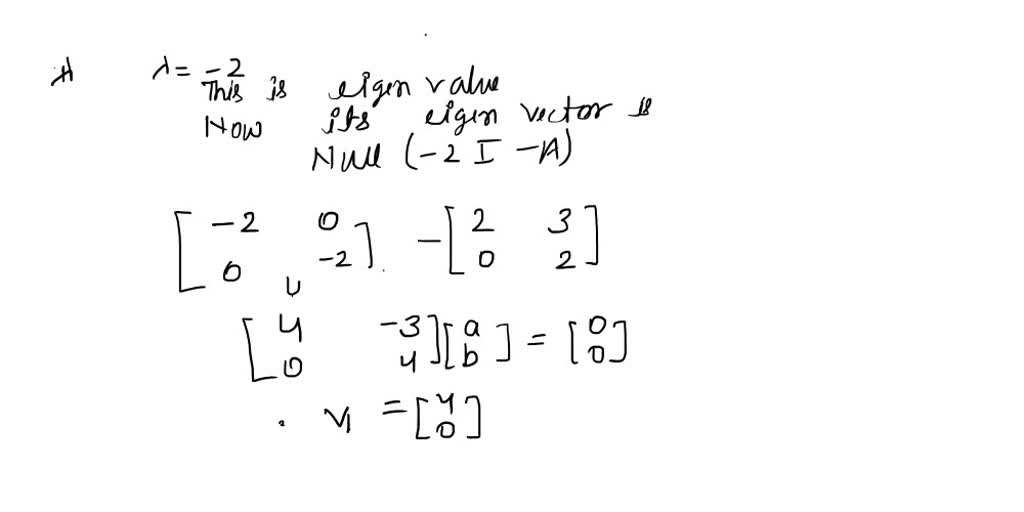 λ = -2
This is eigen value
Now its eigen vector is
Null (-2 I - A)
[ -2 0
0 -2 ] - [ 2 3
0 2 ]
[ 4 -3
0 4 ] [ a
b ] = [ 0
0 ]
V1 = [ 4
0 ]